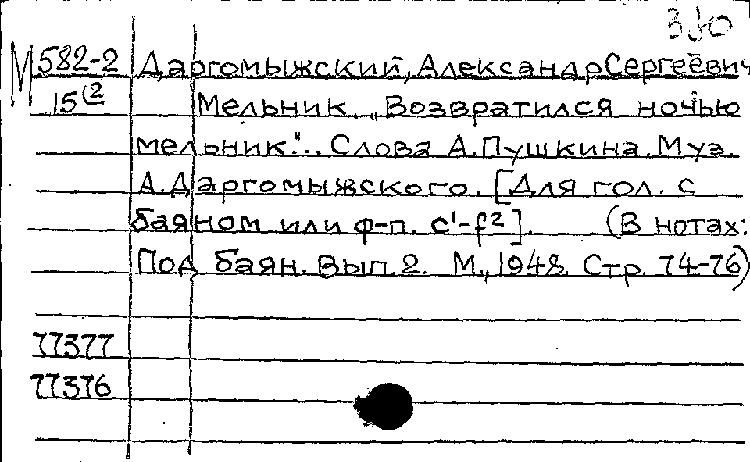 380
М 582-2 Даргомыжский, Александр Сергеевич
15(2 Мельник. „Возвратился ночью
мельник."... Слова А. Пушкина. Муз.
А. Даргомыжского. [Для гол. с
баяном или ф-п. c¹-f²]. (В нотах:
Под баян. Вып. 2. М., 1948. Стр. 74-76)
77377
77376